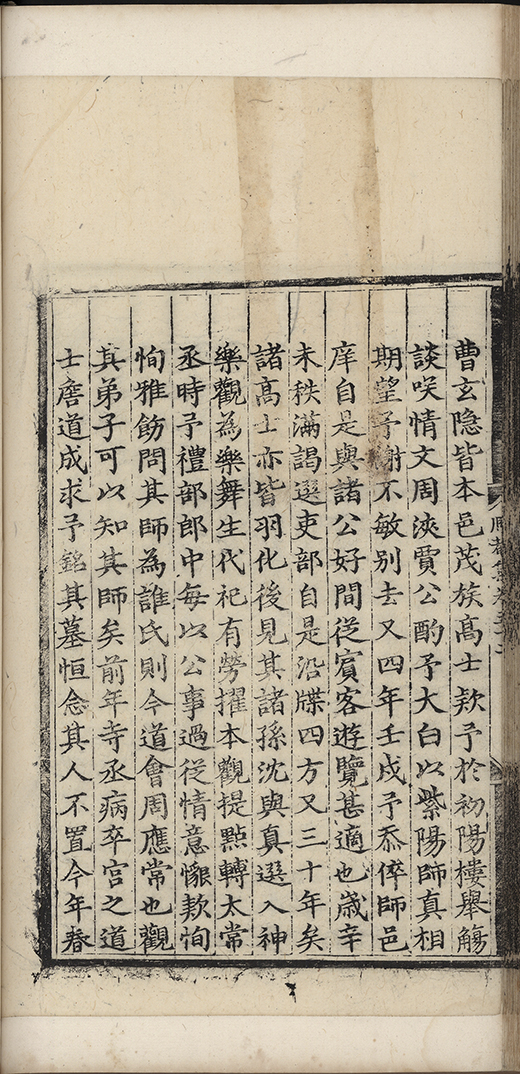 曹玄隐皆本邑茂族髙士欵予於初陽樓舉觴
談咲情文周浹賈公酌予大白以紫陽師真相
期望予謝不敏别去又四年壬戍予忝倅師邑
庠自是與諸公好間從賔客遊覽甚適也歲辛
未秩滿謁選吏部自是沿牒四方又三十年矣
諸髙士亦皆羽化後見其諸孫沈與真選入神
樂觀為樂舞生代祀有勞擢本觀提㸃轉太常
丞時予禮部郎中每以公事過從情意懇欵恂
恂雅飭問其師為誰氏則今道會周應常也觀
其弟子可以知其師矣前年寺丞病卒宫之道
士詹道成求予銘其墓恒念其人不置今年春